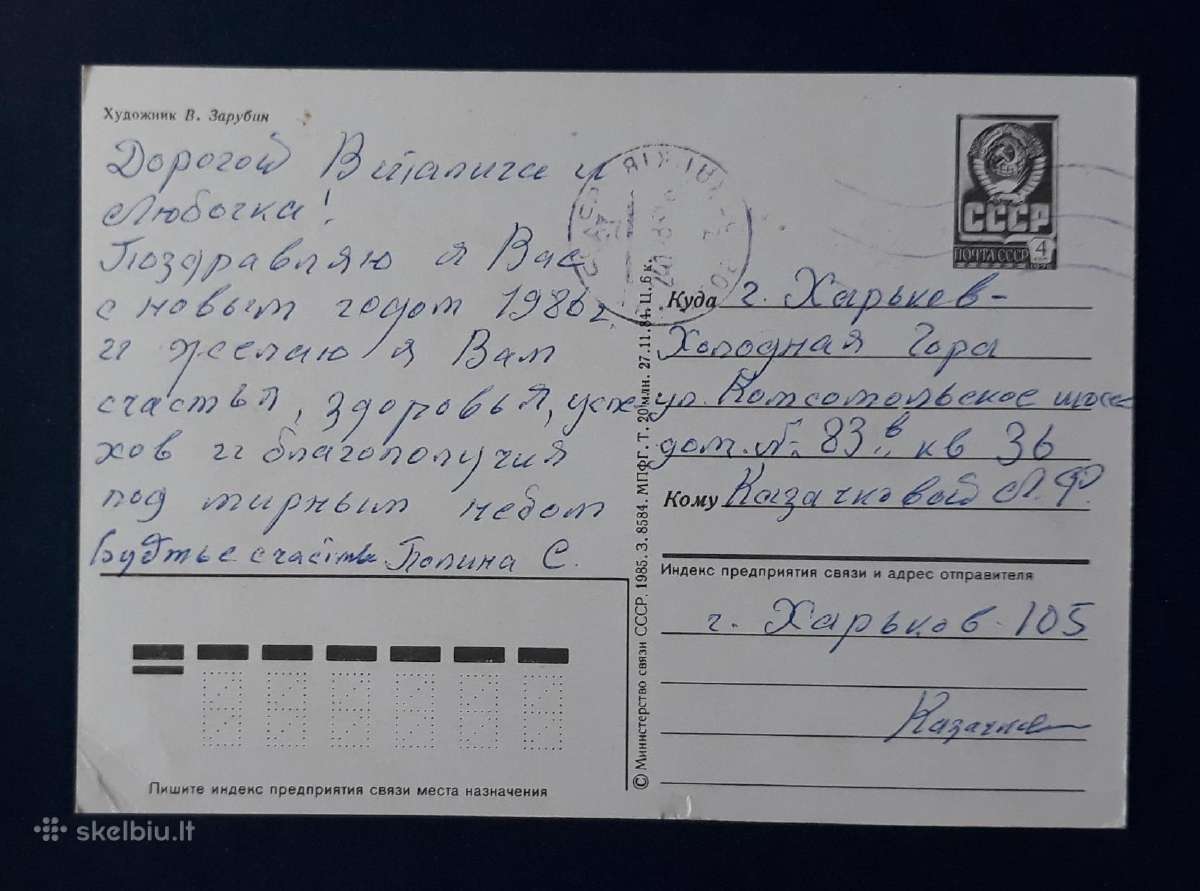 Художник В. Зарубин
Дорогой Виталича и
Любочка!
Поздравляю я Вас
с новым годом 1986 г.
и желаю я Вам
счастья, здоровья, успе
хов и благополучия
под мирным небом
Будтье счастывы Полина С.
Пишите индекс предприятия связи места назначения
© Министерство связи СССР. 1985. З. 8584. МПФГ. Т. 20 млн. 27.11.84. Ц. 6 к.
СССР
ПОЧТА СССР
4
Куда г. Харьков-
Холодная Гора
ул. Комсомольское шоссе
дом. № 83 в кв 36
Кому Казачковой Л. Ф.
Индекс предприятия связи и адрес отправителя
г. Харьков-105
skelbiu.lt